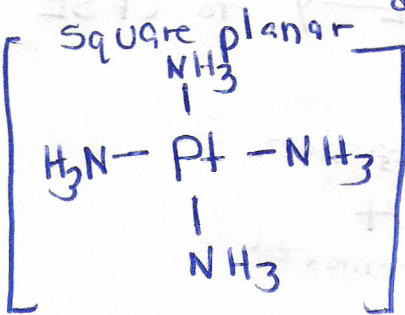 square planar
NH3
H3N— Pt —NH3
NH3